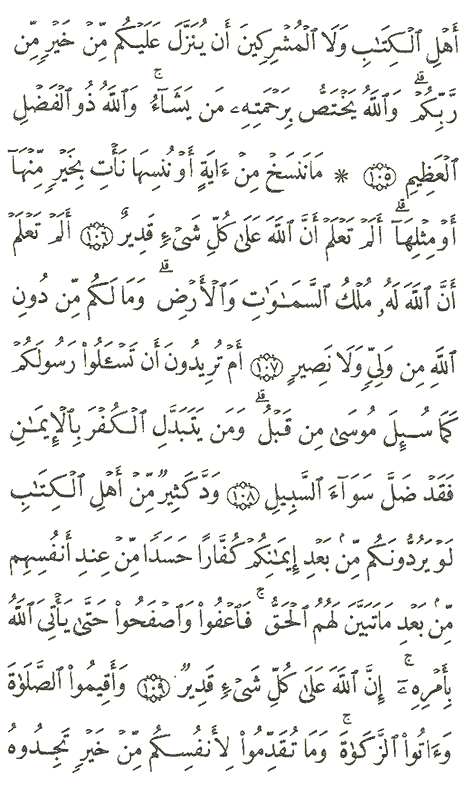 أَهۡلِ ٱلۡكِتَٰبِ وَلَا ٱلۡمُشۡرِكِينَ أَن يُنَزَّلَ عَلَيۡكُم مِّنۡ خَيۡرٖ مِّن
رَّبِّكُمۡۗ وَٱللَّهُ يَخۡتَصُّ بِرَحۡمَتِهِۦ مَن يَشَآءُۚ وَٱللَّهُ ذُو ٱلۡفَضۡلِ
ٱلۡعَظِيمِ ١٠٥ * مَا نَنسَخۡ مِنۡ ءَايَةٍ أَوۡ نُنسِهَا نَأۡتِ بِخَيۡرٖ مِّنۡهَآ
أَوۡ مِثۡلِهَآۗ أَلَمۡ تَعۡلَمۡ أَنَّ ٱللَّهَ عَلَىٰ كُلِّ شَيۡءٖ قَدِيرٌ ١٠٦ أَلَمۡ تَعۡلَمۡ
أَنَّ ٱللَّهَ لَهُۥ مُلۡكُ ٱلسَّمَٰوَٰتِ وَٱلۡأَرۡضِۗ وَمَا لَكُم مِّن دُونِ
ٱللَّهِ مِن وَلِيّٖ وَلَا نَصِيرٍ ١٠٧ أَمۡ تُرِيدُونَ أَن تَسۡـَٔلُواْ رَسُولَكُمۡ
كَمَا سُئِلَ مُوسَىٰ مِن قَبۡلُۗ وَمَن يَتَبَدَّلِ ٱلۡكُفۡرَ بِٱلۡإِيمَٰنِ
فَقَدۡ ضَلَّ سَوَآءَ ٱلسَّبِيلِ ١٠٨ وَدَّ كَثِيرٞ مِّنۡ أَهۡلِ ٱلۡكِتَٰبِ
لَوۡ يَرُدُّونَكُم مِّنۢ بَعۡدِ إِيمَٰنِكُمۡ كُفَّارًا حَسَدٗا مِّنۡ عِندِ أَنفُسِهِم
مِّنۢ بَعۡدِ مَا تَبَيَّنَ لَهُمُ ٱلۡحَقُّۖ فَٱعۡفُواْ وَٱصۡفَحُواْ حَتَّىٰ يَأۡتِيَ ٱللَّهُ
بِأَمۡرِهِۦٓۗ إِنَّ ٱللَّهَ عَلَىٰ كُلِّ شَيۡءٖ قَدِيرٞ ١٠٩ وَأَقِيمُواْ ٱلصَّلَوٰةَ
وَءَاتُواْ ٱلزَّكَوٰةَۚ وَمَا تُقَدِّمُواْ لِأَنفُسِكُم مِّنۡ خَيۡرٖ تَجِدُوهُ